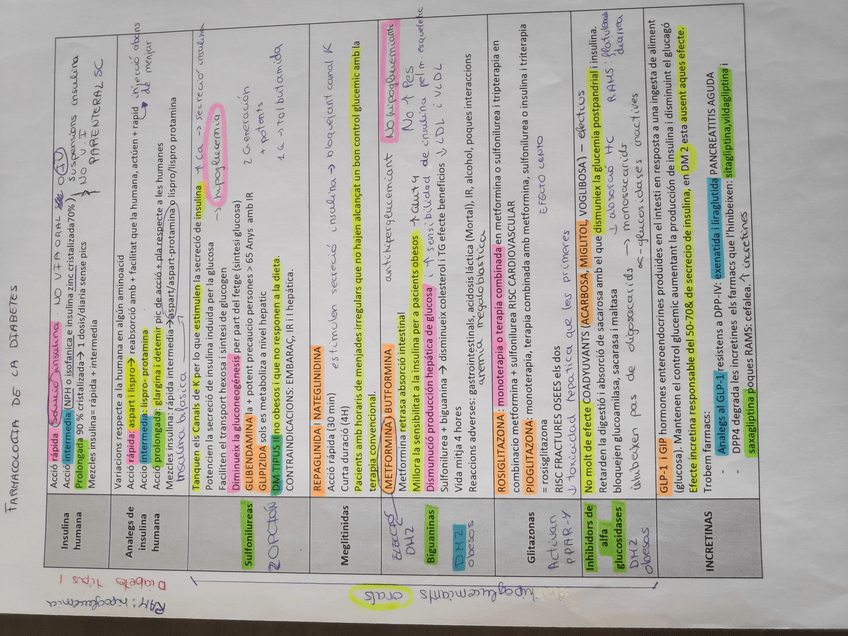 FARMACOLOGIA DE LA DIABETES
RAM: hipoglucemia
Diabetes tipus 1
Insulina humana
Acció rápida NO VIA ORAL
Acció intermedia (NPH) o isofanica e insulina zinc cristalizada70%)
Prolongada 90 % cristalizada→ 1 dosis/diaria sense pics
Mezcles insulina= rápida + intermedia
suspensions insulina
NO VI
PARENTERAL SC
Analegs de insulina humana
Variacions respecte a la humana en algún aminoacid
Acció rápida: aspart i lispro→ reabsorció amb + facilitat que la humana, actúen + rapid
injecció abans de menjar
Acció intermedia: lispro- protamina
Acció prolongada: glargina i detemir pic de acció + plá respecte a les humanes
Mezcles insulina: rápida intermedia →aspart/aspart-protamina o lispro/lispro protamina
hipoglucemiants orals
Sulfonilureas
2 OPCIÓN
Tanquen els Canals de K per lo que estimulen la secreció de insulina
↑ Ca → secreció insulina
Potencien la secreció de insulina induida per la glucosa
→ hipoglucemia
Faciliten el transport hexosa i síntesi de glucogen
Diminueix la gluconeogénesis per part del fetge (síntesi glucosa)
GLIBENDAMINA la + potent precaucio persones > 65 Anys amb IR
2 Generación + potents
GLIPIZIDA sols es metaboliza a nivel hepátic
DM TIPUS II no obesos i que no responen a la dieta.
1a → Tolbutamida
CONTRAINDICACIONS: EMBARAÇ, IR I I hepática.
Meglitinidas
REPAGLINIDA I NATEGLINIDINA
Acció rápida (30 min)
estimulen secreció insulina → bloquejant canal K
Curta duració (4H)
Pacients amb horaris de menjades irregulars que no hajen alcançat un bon control glucemic amb la
terapia convencional.
Biguaninas
ELECCIÓ DM2
DM2 obesos
METFORMINA) BUTFORMINA
antihiperglucemiant NO hipoglucemiants
Metformina retrasa absorció intestinal
Millora la sensibilitat a la insulina per a pacients obesos
↑ Glut4 NO ↑ Pes
Dismunució producción hepática de glucosa i ↑ sensibilidad de insulina
Sulfonilurea + biguanina → disminueix colesterol i TG efecte beneficios ↓ LDL i VLDL
Vida mitja 4 hores
Reaccions adverses: gastrointestinals, acidosis láctica (Mortal), IR, alcohol, poques interaccions
anemia megaloblástica
Glitazonas
Activan PPAR-γ
ROSIGLITAZONA: monoterapia o terapia combinada en metformina o sulfonilurea o tripterapia en
combinacio metformina + sulfonilurea RISC CARDIOVASCULAR
PIOGLITAZONA: monoterapia, terapia combinada amb metformina, sulfonilurea o insulina i triterapia
= rosiglitazona
EFECTO LENTO
RISC FRACTURES OSEES els dos
↓ toxicidad hepatica que las primeres
Inhibidors de alfa glucosidases
DM2 obesas
No molt de efecte COADYUVANTS (ACARBOSA, MIGLITOL, VOGLIBOSA) – efectius
Retarden la digestió i absorció de sacarosa amb el que dismuniex la glucemia postpandrial i insulina.
bloquejen glucoamilasa, sacarasa i maltasa
↓ absorció HC
RAMS: flatulencia diarrea
inhibeixen pas de oligosacarids → monosacarids
α-glucosidases inactives
INCRETINAS
GLP-1 I GIP hormones enteroendocrines produides en el intestí en resposta a una ingesta de aliment
(glucosa). Mantenen el control glucemic aumentant la produccion de insulina i disminuint el glucagó
Efecte incretina responsable del 50-70& de secreció de insulina, en DM 2 esta ausent aques efecte.
Trobem farmacs:
- Analegs al GLP-1 resistens a DPP-IV: exenatida i liraglutida PANCREATITIS AGUDA
- DPP4 degrada les incretines els farmacs que l'hinibeixen: sitagliptina,vildagliptina i
saxagliptina poques RAMS: cefalea. ↑ incretines